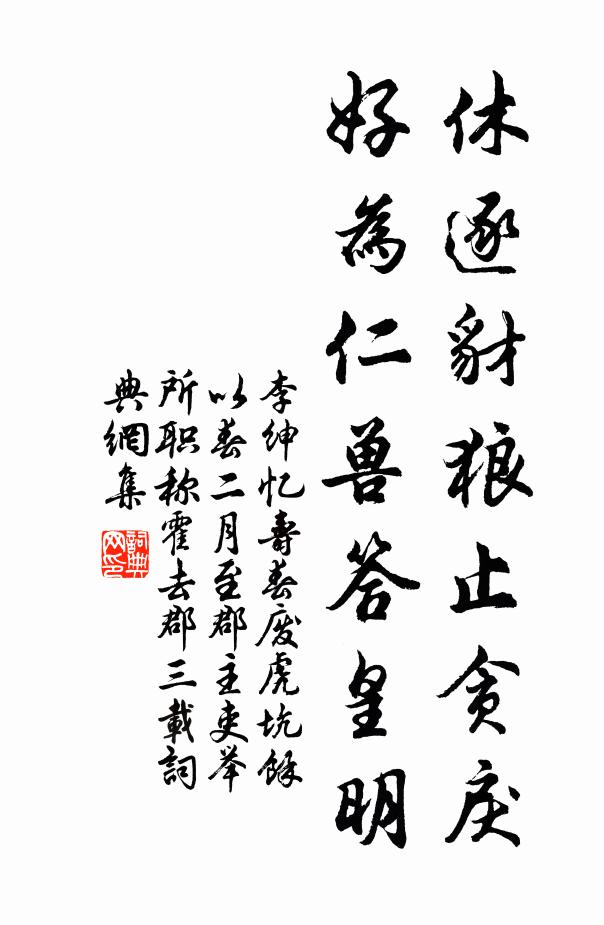 休逐豺狼止贪戾
好為仁兽答皇明
李绅忆壽春废虎坑馀
以春二月至郡主吏举
所职称霍去郡三載詞
典網集
詞典网印